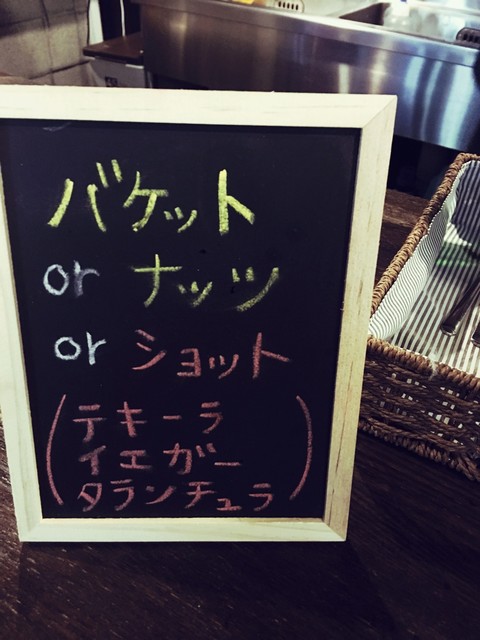 バケット
or ナッツ
or ショット
(テキーラ
イエガー
タランチュラ)